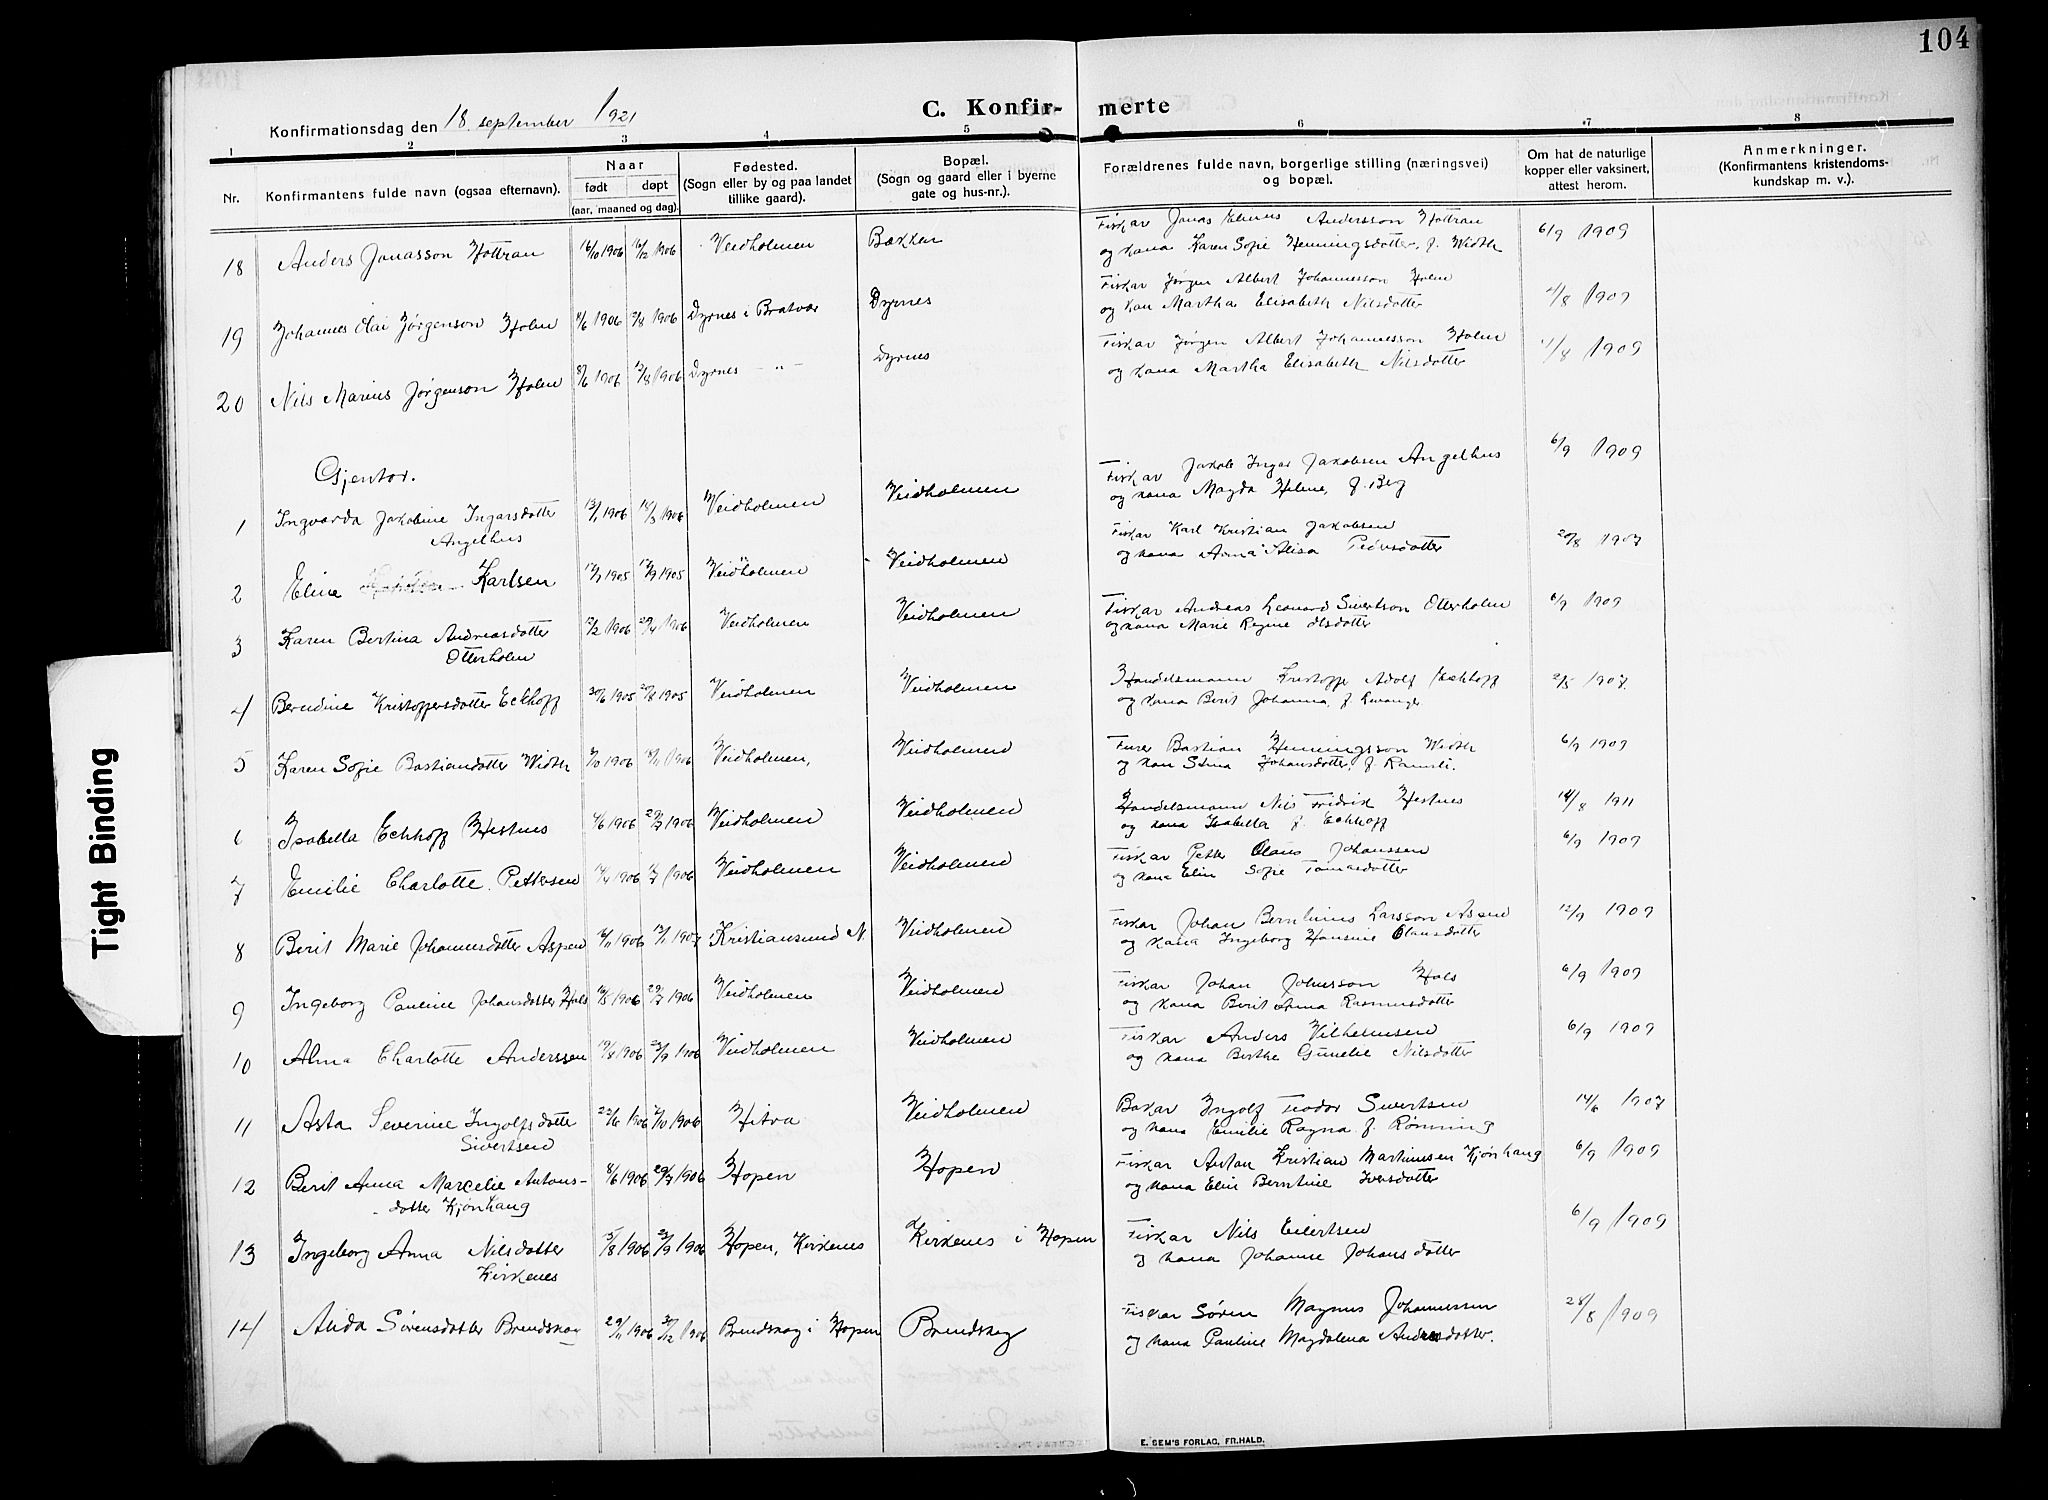 104
Konfirmationsdag den 18. september 1921
C. Konfir- merte
1 2 3 4 5 6 7 8
Nr.
Konfirmantens fulde navn (ogsaa efternavn).
Naar
født døpt
(aar, maaned og dag).
Fødested.
(Sogn eller by og paa landet
tillike gaard).
Bopæl.
(Sogn og gaard eller i byerne
gate og hus-nr.).
Forældrenes fulde navn, borgerlige stilling (næringsvei)
og bopæl.
Om hat de naturlige
kopper eller vaksinert,
attest herom.
Anmerkninger.
(Konfirmantens kristendoms-
kundskap m. v.).
18 Anders Jonasson Hottran 16/10 1906 16/12 1906 Veidholmen Bakken Fiskar Jonas Elinus Andersson Hottran 6/9 1909
og kona Karen Sofie Henningsdotter, f. Width
19 Johannes Olai Jørgenson Holm 1906 1906 Dyrnes i Bratvær Dyrnes Fiskar Jørgen Albert Johannesson Holm 1909
og kon Martha Elisabeth Nilsdotter
20 Nils Marius Jørgenson Holm 8/6 1906 12/8 1906 Dyrnes - " - Dyrnes Fiskar Jørgen Albert Johannesson Holm 1909
og kona Martha Elisabeth Nilsdotter
Gjentor.
1 Ingvarda Jakobine Ingarsdotter 13/1 1906 18/3 1906 Veidholmen Veidholmen Fiskar Jakob Ingar Jakobsen Angelhus 6/9 1909
Angelhus og kona Magda Helene, f. Berg
2 Eline Karlsen 1905 1905 Veidholmen Veidholmen Fiskar Karl Kristian Jakobsen 20/8 1907
og kona Anna Alisa Pedersdotter
3 Karen Bertina Andreasdotter 12/2 1906 29/4 1906 Veidholmen Veidholmen Fiskar Andreas Leonard Sivertson Otterholm 6/9 1909
Otterholm og kona Marie Regine Olsdotter
4 Berndine Kristoffersdotter Eckhoff 30/6 1905 27/8 1905 Veidholmen Veidholmen Handelsmann Kristoffer Adolf Eckhoff 2/5 1907.
og kona Berit Johanna, f. Levanger
5 Karen Sofie Bastiandotter Width 1906 18/11 1906 Veidholmen, Veidholmen Bastian Henningsson Width 6/9 1909
og kon Stina Johansdotter, f. Ramsli.
6 Isabella Eckhoff Hestnes 1906 29/7 1906 Veidholmen Veidholmen Handelsmann Nils Fredrik Hestnes 14/8 1911
og kona Isabella f. Eckhoff
7 Emilie Charlotte Pettersen 1906 1906 Veidholmen Veidholmen Fiskar Petter Olaus Johanssen 6/9 1909
og kona Elin Sofie Tomasdotter
8 Berit Marie Johannesdotter Aspen 1906 13/1 1907 Kristiansund N. Veidholmen Fiskar Johan Bernhinus Larsson Aspen 12/9 1909
og kona Ingeborg Hansine Olausdotter
9 Ingeborg Pauline Johansdotter Hals 1906 29/7 1906 Veidholmen Veidholmen Fiskar Johan Johnsson Hals 6/9 1909
og kona Berit Anna Rasmusdotter
10 Alma Charlotte Anderssen 19/8 1906 23/9 1906 Veidholmen Veidholmen Fiskar Anders Vilhelmsen 6/9 1909
og kona Berthe Gunelie Nilsdotter
11 Asta Severine Ingolfsdotter 22/6 1906 7/10 1906 Hitra Veidholmen Bakar Ingolf Teodor Sivertsen 14/6 1907
Sivertsen og kona Emilie Ragna f. Rønning
12 Berit Anna Marcelie Antons- 8/6 1906 29/7 1906 Hopen Hopen Fiskar Anton Kristian Martinusen Kjønhaug 6/9 1909
dotter Kjønhaug og kona Elin Berntine Iversdotter
13 Ingeborg Anna Nilsdotter 5/8 1906 23/9 1906 Hopen, Kirkenes Kirkenes i Hopen Fiskar Nils Eilertsen 6/9 1909
Kirkenes og kona Johanne Johansdotter
14 Alida Sørensdotter Brendskag 29/11 1906 30/12 1906 Brendskag i Hopen Brendskag Fiskar Søren Magnus Johannessen 28/8 1909
og kona Pauline Magdalena Andersdotter.
E. SEM'S FORLAG, FR.HALD.
Tight Binding